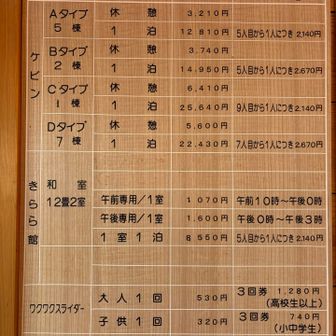 ケビン
Aタイプ 5棟 休憩 3,210円
1泊 12,810円 5人目から1人につき2,140円
Bタイプ 2棟 休憩 3,740円
1泊 14,950円 5人目から1人につき2,670円
Cタイプ 1棟 休憩 6,410円
1泊 25,640円 9人目から1人につき2,140円
Dタイプ 7棟 休憩 5,600円
1泊 22,430円 7人目から1人につき2,670円
きらら館
和室 12畳2室
午前専用/1室 1,070円 午前10時〜午後0時
午後専用/1室 1,600円 午後0時〜午後3時
1室1泊 8,550円 5人目から1人につき2,140円
ワクワクスライダー
大人1回 530円 3回券 1,280円
(高校生以上)
子供1回 320円 3回券 740円
(小中学生)